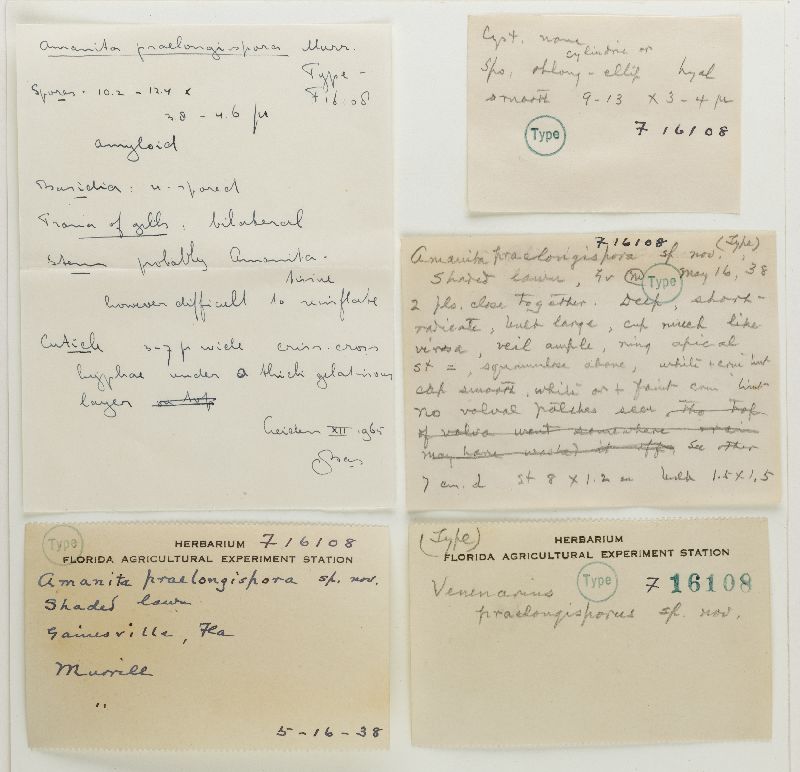 Amanita praelongispora Murr.
Type -
F16108
Spores. 10.2 - 12.4 x
3.8 - 4.6 µ
amyloid
Basidia: 4-spored
Trama of gills: bilateral
Stem probably Amanita.
tissue
however difficult to reinflate
Cuticle 3-7 µ wide criss-cross
hyphae under a thick gelatinous
layer on top
Leiden XII 1965
Bas
Cyst. none
cylindric or
Spo. oblong-ellip hyal
smooth 9-13 x 3-4 µ
Type
F 16108
F16108
Amanita praelongispora sp. nov. (Type)
Shaded lawn, Gv Type May 16, 38
2 pls. close together. Deep, short-
radicate, bulb large, cup much like
virosa, veil ample, ring apical
st =, squamulose above, white
cap smooth, white or faint
no volval patches seen The top
of volva went somewhere rain
may have washed it off. See other
7 cm. d st 8 x 1.2 cm bulb 1.5 x 1.5
Type
HERBARIUM F16108
FLORIDA AGRICULTURAL EXPERIMENT STATION
Amanita praelongispora sp. nov.
Shaded lawn
Gainesville, Fla
Murrill
"
5-16-38
(Type)
HERBARIUM
FLORIDA AGRICULTURAL EXPERIMENT STATION
Venenarius Type F 16108
praelongisporus sp. nov.